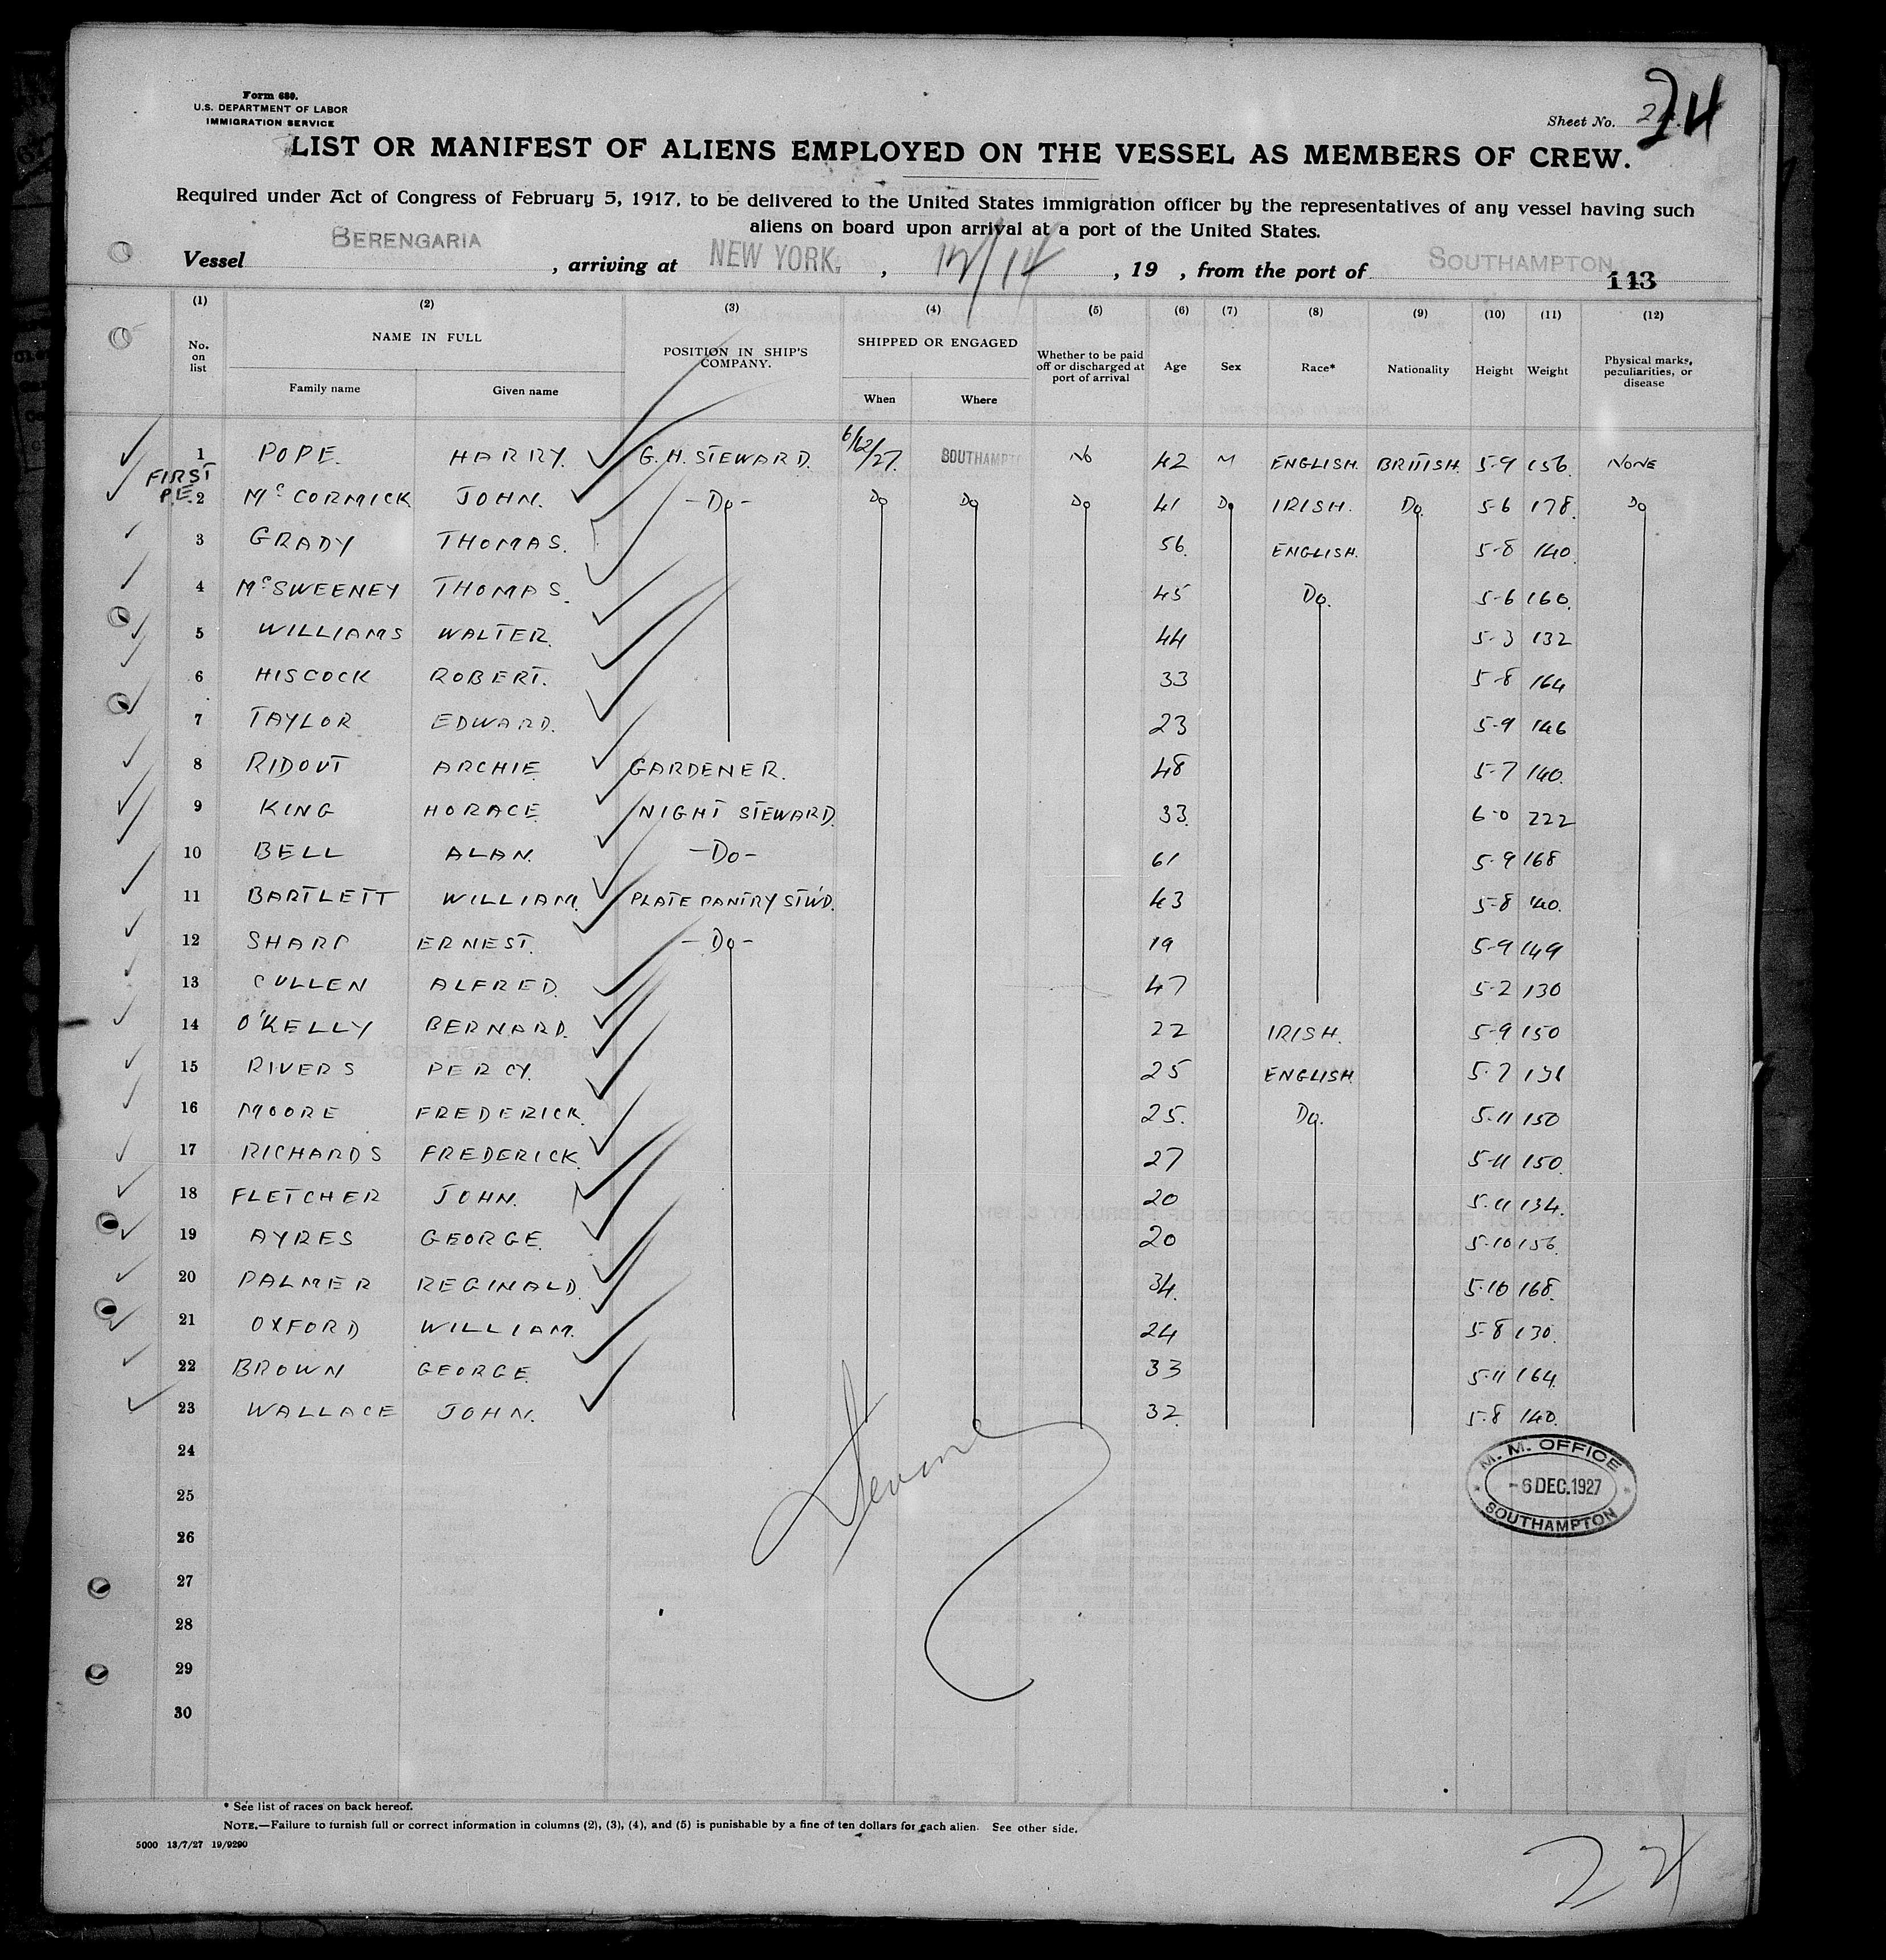 Form 680.
U.S. DEPARTMENT OF LABOR
IMMIGRATION SERVICE
Sheet No. 24
LIST OR MANIFEST OF ALIENS EMPLOYED ON THE VESSEL AS MEMBERS OF CREW.
Required under Act of Congress of February 5, 1917, to be delivered to the United States immigration officer by the representatives of any vessel having such
aliens on board upon arrival at a port of the United States.
Vessel BERENGARIA, arriving at NEW YORK, 12/14, 19 , from the port of SOUTHAMPTON
113
(1) (2) (3) (4) (5) (6) (7) (8) (9) (10) (11) (12)
No. on list NAME IN FULL Family name Given name POSITION IN SHIP'S COMPANY. SHIPPED OR ENGAGED When Where Whether to be paid off or discharged at port of arrival Age Sex Race* Nationality Height Weight Physical marks, peculiarities, or disease
1 POPE. HARRY. G.H. STEWARD. 6/12/27. SOUTHAMPT No 42 M ENGLISH. BRITISH. 5-9 156. NONE
FIRST
P.E. 2 McCORMICK JOHN. -Do- Do Do Do 41 Do IRISH. Do. 5-6 178. Do
3 GRADY THOMAS. 56. ENGLISH. 5-8 140.
4 McSWEENEY THOMAS. 45 Do. 5-6 160.
5 WILLIAMS WALTER. 44 5-3 132
6 HISCOCK ROBERT. 33 5-8 164
7 TAYLOR EDWARD. 23 5-9 146
8 RIDOUT ARCHIE. GARDENER. 48 5-7 140.
9 KING HORACE. NIGHT STEWARD. 33. 6-0 222
10 BELL ALAN. -Do- 61 5-9 168
11 BARTLETT WILLIAM. PLATE PANTRY STW'D. 43 5-8 140.
12 SHARP ERNEST. -Do- 19 5-9 149
13 CULLEN ALFRED. 47 5-2 130
14 O'KELLY BERNARD. 22 IRISH. 5-9 150
15 RIVERS PERCY. 25 ENGLISH. 5-7
16 MOORE FREDERICK. 25. Do. 5-11 150
17 RICHARDS FREDERICK. 27 5-11 150.
18 FLETCHER JOHN. 20 5-11 134.
19 AYRES GEORGE. 20 5-10 156.
20 PALMER REGINALD. 34. 5-10 168.
21 OXFORD WILLIAM. 24 5-8 130.
22 BROWN GEORGE. 33 5-11 164.
23 WALLACE JOHN. 32. 5-8 140.
24
25
26
27
28
29
30
M. M. OFFICE
-6 DEC. 1927
SOUTHAMPTON
* See list of races on back hereof.
NOTE.—Failure to furnish full or correct information in columns (2), (3), (4), and (5) is punishable by a fine of ten dollars for each alien. See other side.
5000 13/7/27 19/9290
24